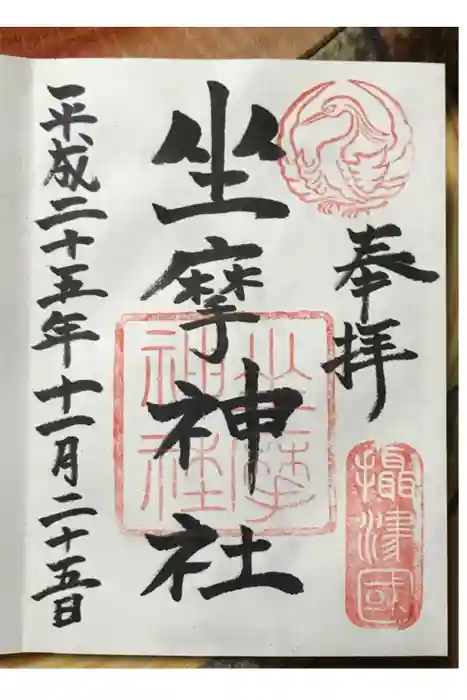 奉拝
攝津國
坐摩神社
坐摩神社
平成二十五年十一月二十五日